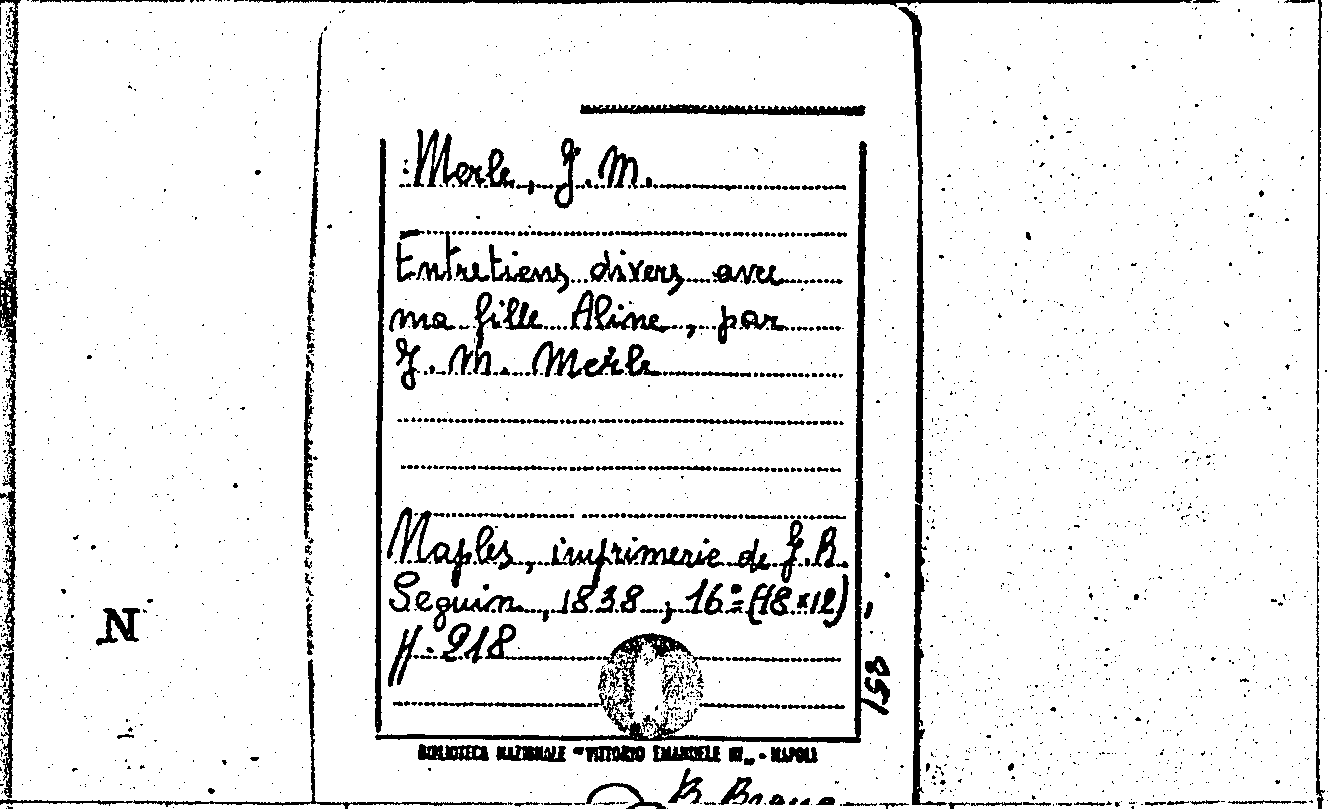 Merle, J. M.
Entretiens divers avec
ma fille Aline, par
J. M. Merle
Naples, imprimerie de J. B.
Seguin, 1838, 16º (18×12),
pp. 218
158
N
BIBLIOTECA NAZIONALE "VITTORIO EMANUELE III" - NAPOLI